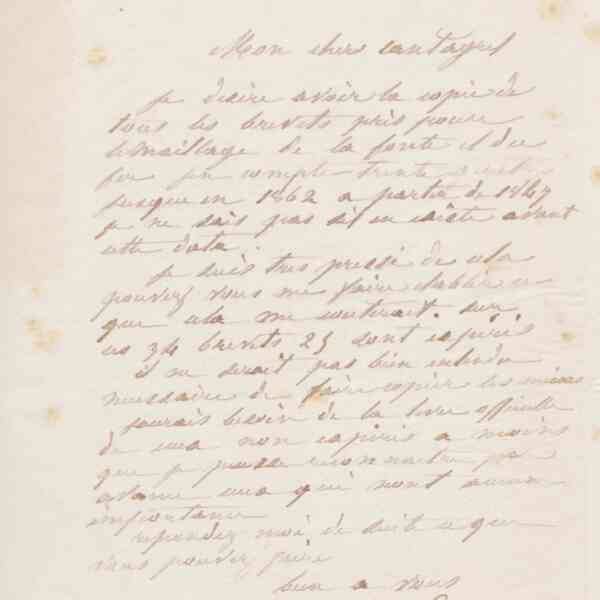 Mon cher cantagrel
Je desire avoir la copie de
tous les brevets pris pour
lemaillage de la fonte et du
fer jen compte trente
jusque en 1862 a partir de 1847
je ne sais pas sil en existe avant
cette data.
Je suis tres pressé de cela
pouvez vous me faire etablir ce
que cela me couterait. sur
ces 34 brevets 25 sont expirés
il ne serait pas bien entendu
necessaire de faire copier les
jaurais besoin de la livre officielle
de ceux non expirés a moins
que je puisse reconnaitre par
avance ceux qui nont aucune
importance
repondez moi de suite ce que
vous pouvez faire
bien a vous